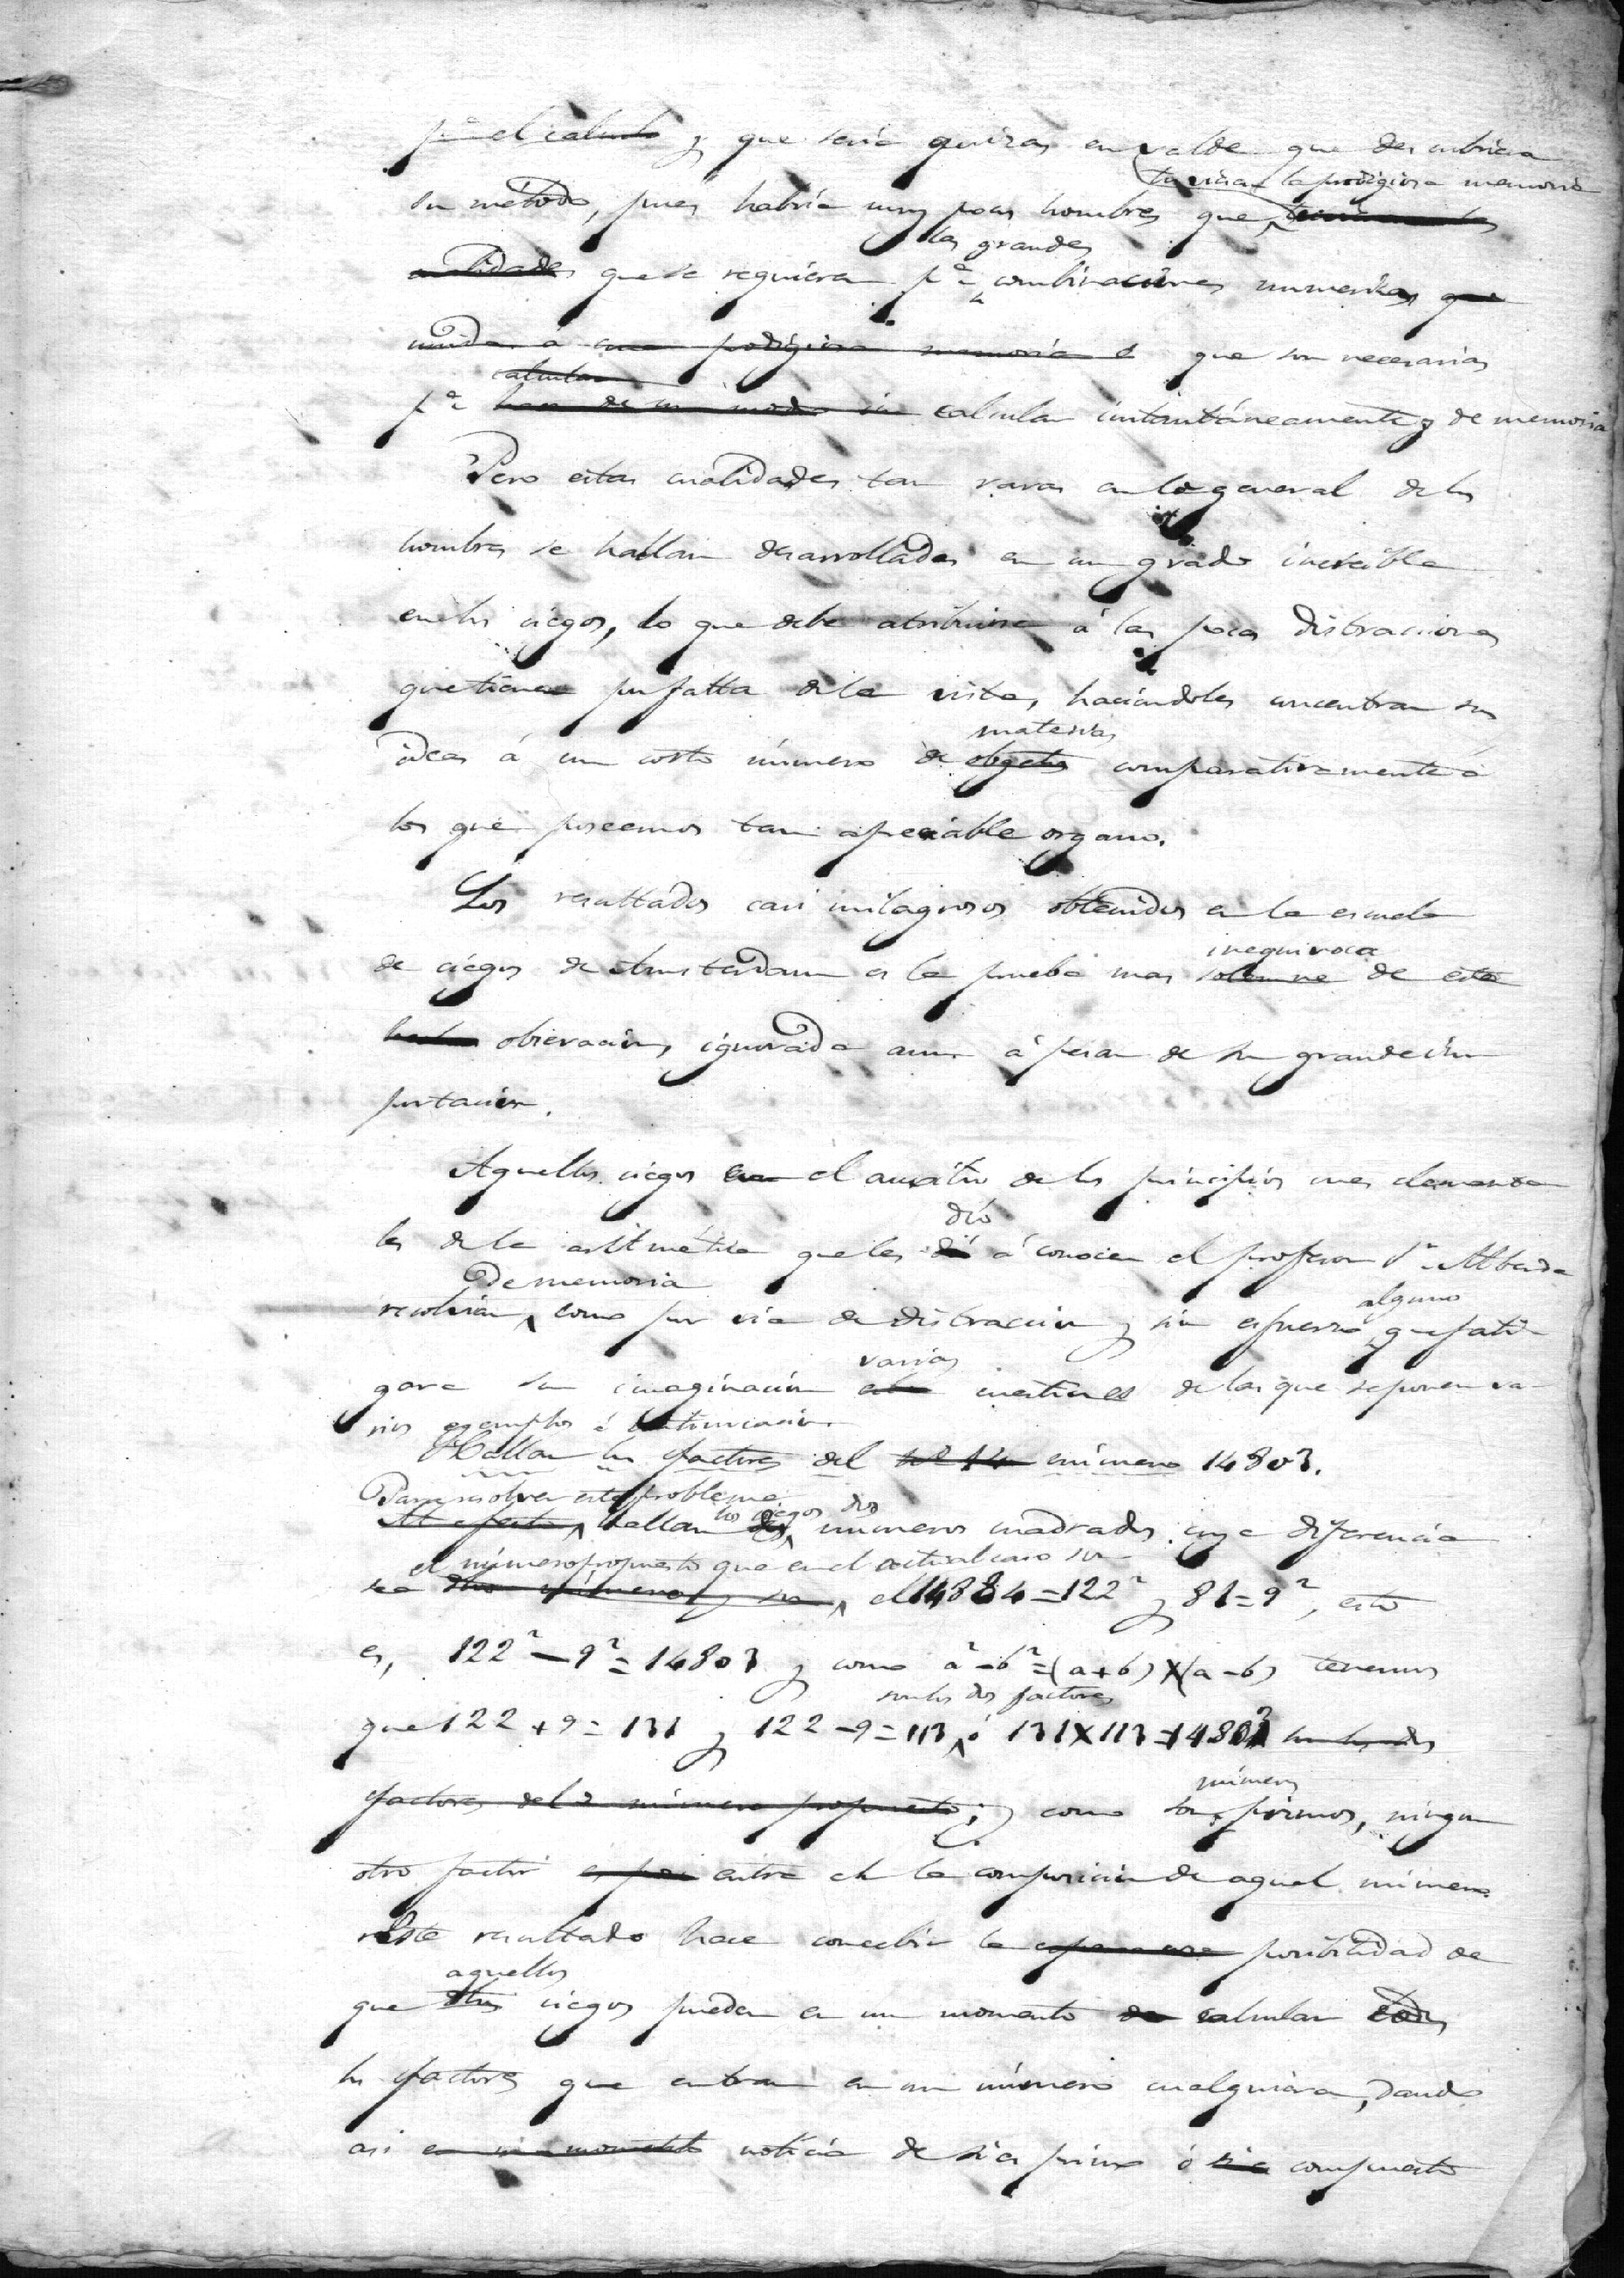 pª el calculo y que seria quizas en valde que descubriera
tuviera la prodigiosa memoria
su método, pues habria muy pocos hombres que
las grandes
cualidades que se requiera pª combinaciones numericas que
unida á una prodigiosa memoria é que son necesarias
calcular
pª calcular instantáneamente y de memoria
Pero estas cualidades tan raras en lo general de los
hombres se hallan desarrolladas en un grado increible
en los ciegos, lo que debe atribuirse á las pocas distracciones
que tienen por falta de la vista, haciendoles concentrar sus
materias
ideas á un corto número de objetos comparativamente á
los que poseemos tan apreciable organo.
Los resultados casi milagrosos obtenidos en la escuela
inequivoca
de ciegos de Amsterdam es la prueba mas solemne de esta
observacion, ignorada aun á pesar de su grande im
portacion.
Aquellos ciegos con el auxilio de los principios mas elementa
dió
les de la aritmética que les dió á conocer el profesor Sr.
De memoria
alguno
resolvian como por via de distraccion y sin esfuerzo que fati
varias
gara su imaginacion cuestiones de las que se ponen va
rios egemplos á continuacion.
Hallar los factores del número 14803.
Para resolver este problema
los ciegos dos
Al efecto hallan dos numeros cuadrados cuya diferencia
el número propuesto que en el actual caso son
sea el 14884=122² y 81=9², esto
es, 122²-9²=14803 y como a²-b²=(a+b)×(a-b) tenemos
son los dos factores
que 122+9=131 y 122-9=113 ó 131×113=14803 son los dos
números
factores del número propuesto; y como son primos, ningun
otro factor entra en la composicion de aquel número.
Este resultado hace concebir la posibilidad de
aquellos
que ciegos puedan en un momento calcular todos
los factores que entran en un número cualquiera, dando
asi en un momento noticia de si es primo ó compuesto